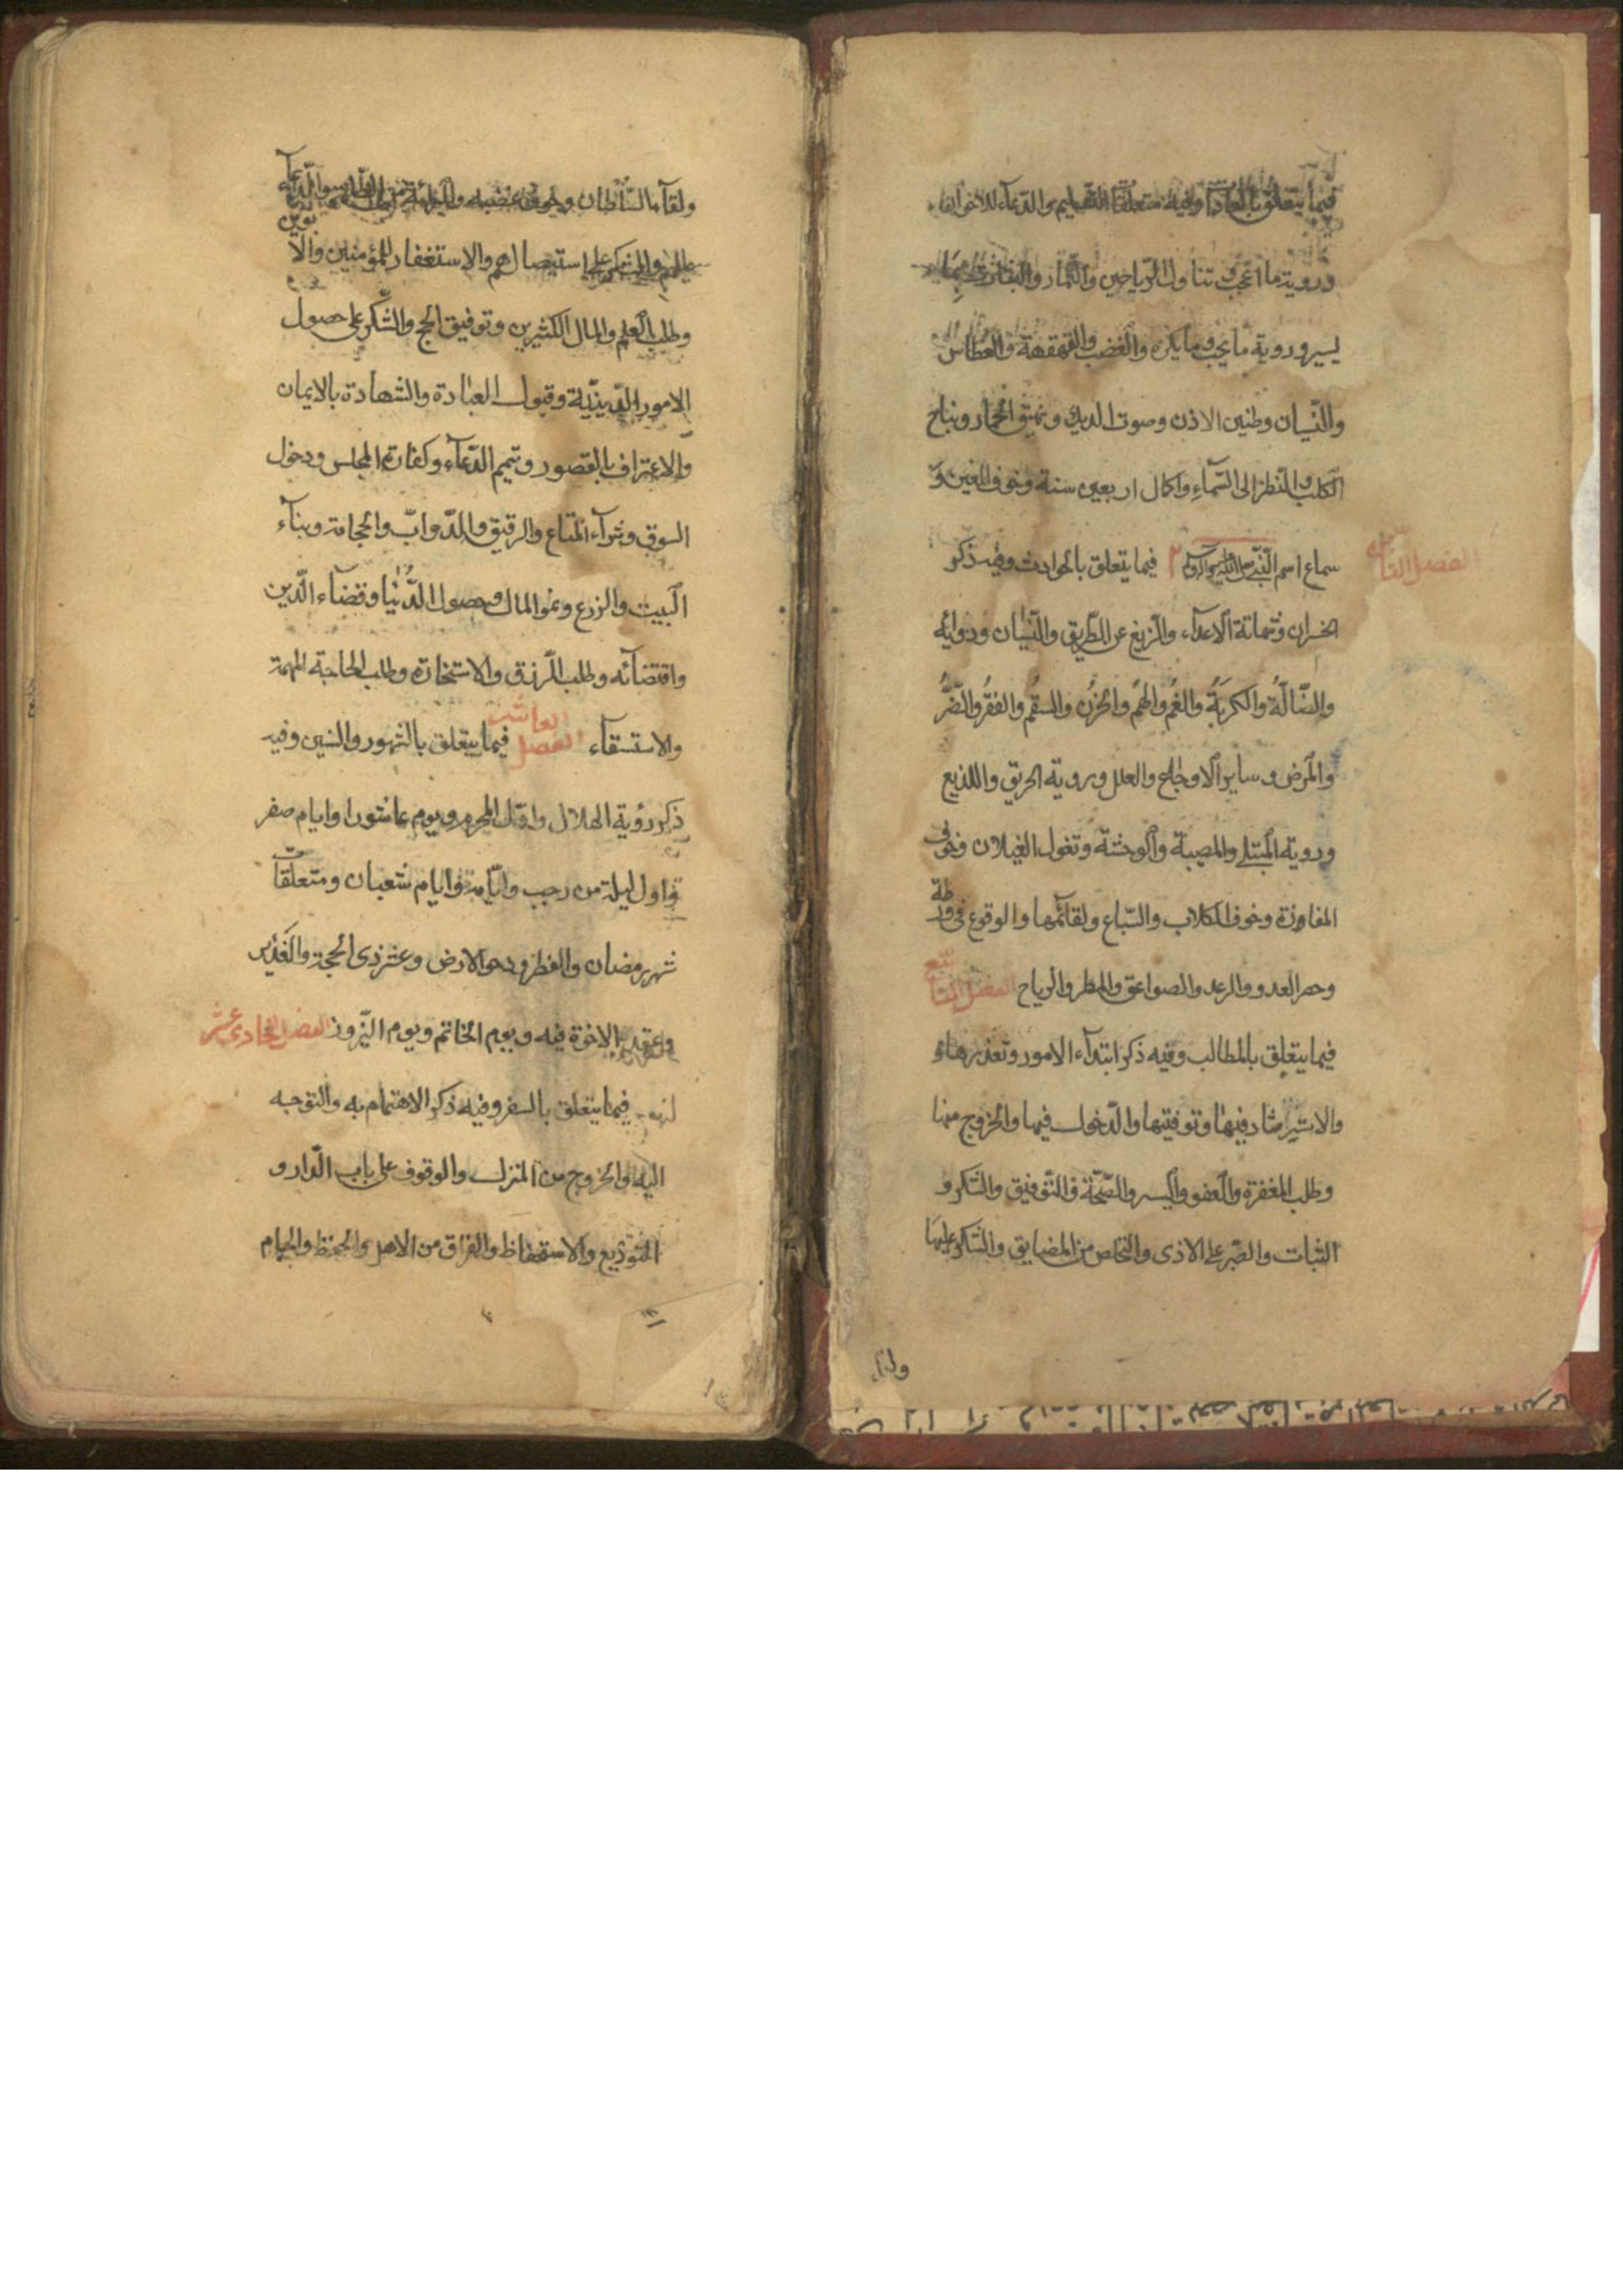 فيما يتعلق بالعادات وفيه متعلقات التسليم والدعاء للاخوان
وروية ما اعجب وتناول الرياحين والثمار
يسير وروية ما يحب وما يكره والغضب والقهقهة والعطاس
والنسيان وطنين الاذن وصوت الديك ونهيق الحمار ونباح
الكلب والنظر الى السماء واكمال اربعين سنة وخوف العين و
سماع اسم النبي صلى الله عليه وآله فيما يتعلق بالحوادث وفيه ذكر
الفصل الثامن
الخسران وشماتة الاعداء والزيغ عن الطريق والنسيان ودوائه
والضالة والكربة والغم والهم والحزن والسقم والفقر والضر
والمرض وساير الاوجاع والعلل وروية الحريق واللذيع
وروية المبتلى والمصيبة والوحشة وتغول الغيلان وخوف
المفاوزة وخوف الكلاب والسباع ولقائهما والوقوع فى ورطة
وحصر العدو والرعد والصواعق والمطر والرياح الفصل التاسع
فيما يتعلق بالمطالب وفيه ذكر ابتداء الامور وتعذرها
والاسترشاد فيها وتوفيتها والدخول فيها والخروج منها
وطلب المغفرة والعفو واليسر والصحة والتوفيق والشكر و
الثبات والصبر على الاذى والتخلص من المضايق والشكر عليها
ولقاء
ولقاء السلطان وخوف غضبه
عليهم والشكر على استيصالهم والاستغفار للمؤمنين والابوين
وطلب العلم والمال الكثيرين وتوفيق الحج والشكر على حصول
الامور الدينية وقبول العبادة والشهادة بالايمان
والاعتراف بالقصور وتتميم الدعاء وكفارة المجلس ودخول
السوق وشراء المتاع والرقيق والدواب والحجامة وبناء
البيت والزرع ونمو المال وحصول الدنيا وقضاء الدين
واقتضائه وطلب الرزق والاستخارة وطلب الحاجة المهمة
والاستسقاء الفصل العاشر فيما يتعلق بالشهور والسنين وفيه
ذكر رؤية الهلال واول المحرم ويوم عاشورا وايام صفر
واول ليلة من رجب وايامه وايام شعبان ومتعلقات
شهر رمضان والفطر ودحو الارض وعشر ذى الحجة والغدير
وعقد الاخوة فيه ويوم الخاتم ويوم النيروز الفصل الحادى عشر
فيما يتعلق بالسفر وفيه ذكر الاهتمام به والتوجه
اليه والخروج من المنزل والوقوف على باب الدار و
التوديع والاستحفاظ والفراق من الاهل والحفظ